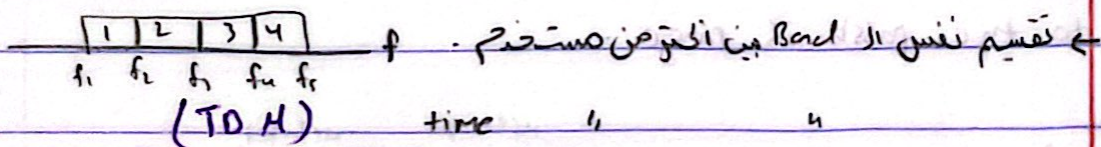 ← تقسيم نفس ال Band بين اكتر من مستخدم . f 1 2 3 4
f₁ f₂ f₃ f₄ f₅
" " time (TDM)